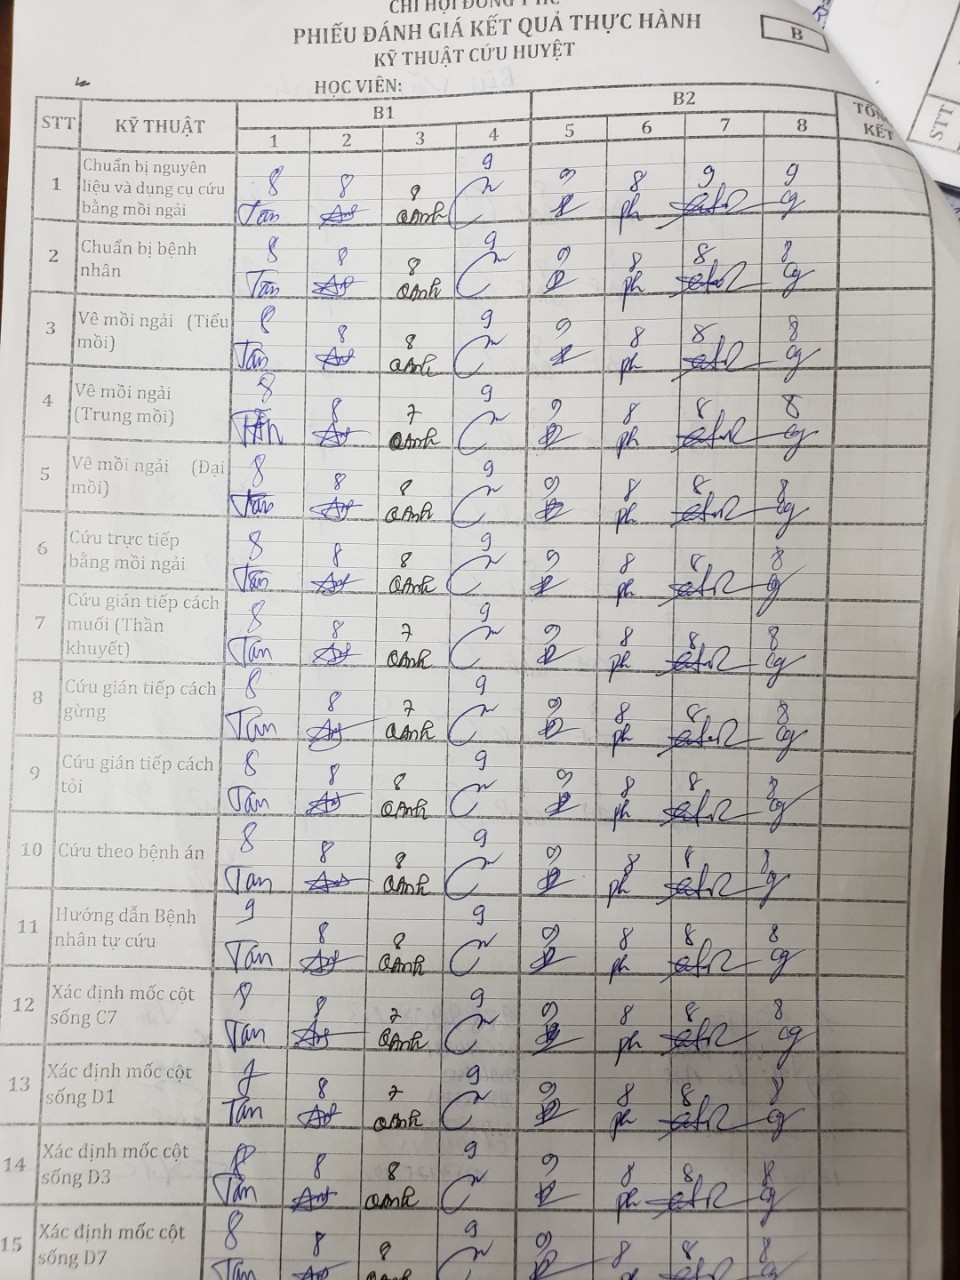 CHI HỘI ĐÔNG Y HC
PHIẾU ĐÁNH GIÁ KẾT QUẢ THỰC HÀNH
B
KỸ THUẬT CỨU HUYỆT
HỌC VIÊN:
STT KỸ THUẬT B1 B2 TỔNG KẾT
1 2 3 4 5 6 7 8
1 Chuẩn bị nguyên liệu và dụng cụ cứu bằng mồi ngải 8 8 8 9 9 8 9 9
Tân QAnh ph cg
2 Chuẩn bị bệnh nhân 8 8 8 9 9 8 8 8
Tân QAnh ph cg
3 Vê mồi ngải (Tiểu mồi) 8 8 8 9 9 8 8 8
Tân QAnh ph cg
4 Vê mồi ngải (Trung mồi) 8 8 7 9 9 8 8 8
TÂN QAnh ph cg
5 Vê mồi ngải (Đại mồi) 8 8 8 9 9 8 8 8
Tân QAnh ph cg
6 Cứu trực tiếp bằng mồi ngải 8 8 8 9 9 8 8 8
Tân QAnh ph cg
7 Cứu gián tiếp cách muối (Thần khuyết) 8 8 7 9 9 8 8 8
Tan QAnh ph cg
8 Cứu gián tiếp cách gừng 8 8 7 9 9 8 8 8
Tan QAnh ph cg
9 Cứu gián tiếp cách tỏi 8 8 8 9 9 8 8 8
Tan QAnh ph cg
10 Cứu theo bệnh án 8 8 8 9 9 8 8 8
Tan QAnh ph cg
11 Hướng dẫn Bệnh nhân tự cứu 9 8 8 9 9 8 8 8
Tan QAnh ph cg
12 Xác định mốc cột sống C7 8 8 7 9 9 8 8 8
Tan QAnh ph cg
13 Xác định mốc cột sống D1 7 8 7 9 9 8 8 8
Tan QAnh ph cg
14 Xác định mốc cột sống D3 8 8 8 9 9 8 8 8
Tân QAnh ph cg
15 Xác định mốc cột sống D7 8 8 8 9 9 8 8 8
Tan QAnh ph cg
STT